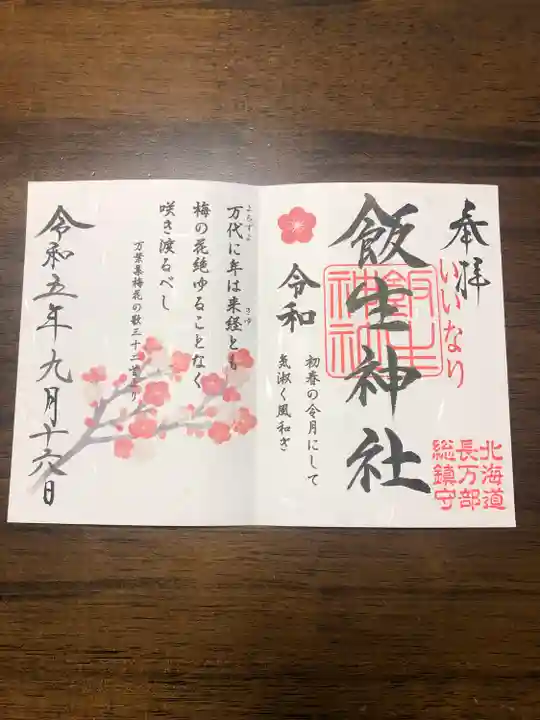 奉拝
いいなり
北海道
長万部
総鎮守
飯生神社
飯生
神社
令和
初春の令月にして
気淑く風和ぎ
よろずよ
万代に年は来経とも
きゆ
梅の花絶ゆることなく
咲き渡るべし
万葉集梅花の歌三十二首より
令和五年九月十六日